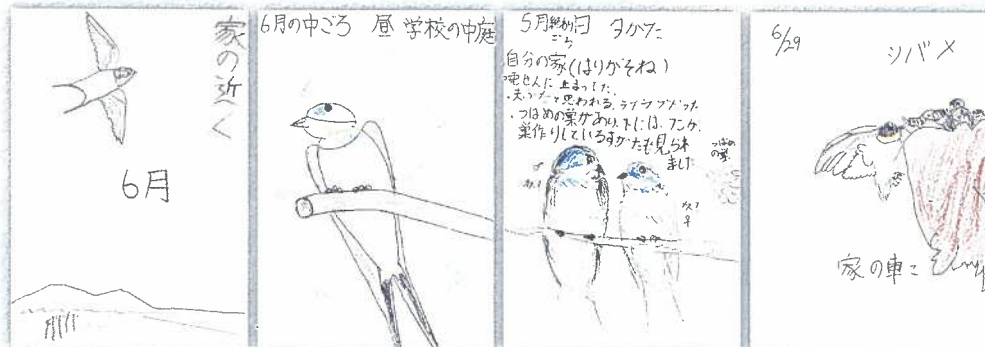 家の近く
6月
6月の中ごろ 昼 学校の中庭
5月 夕かた
ごろ
自分の家(はりがそね)
電せんに止まってた。
・夫ふだと思われる。ラブラブだった
・つばめの巣があり、下には、フンが。
巣作りしているすがたも見られ
ました
つばめ
の巣
♂
♀
6/29
ツバメ
家の車こ